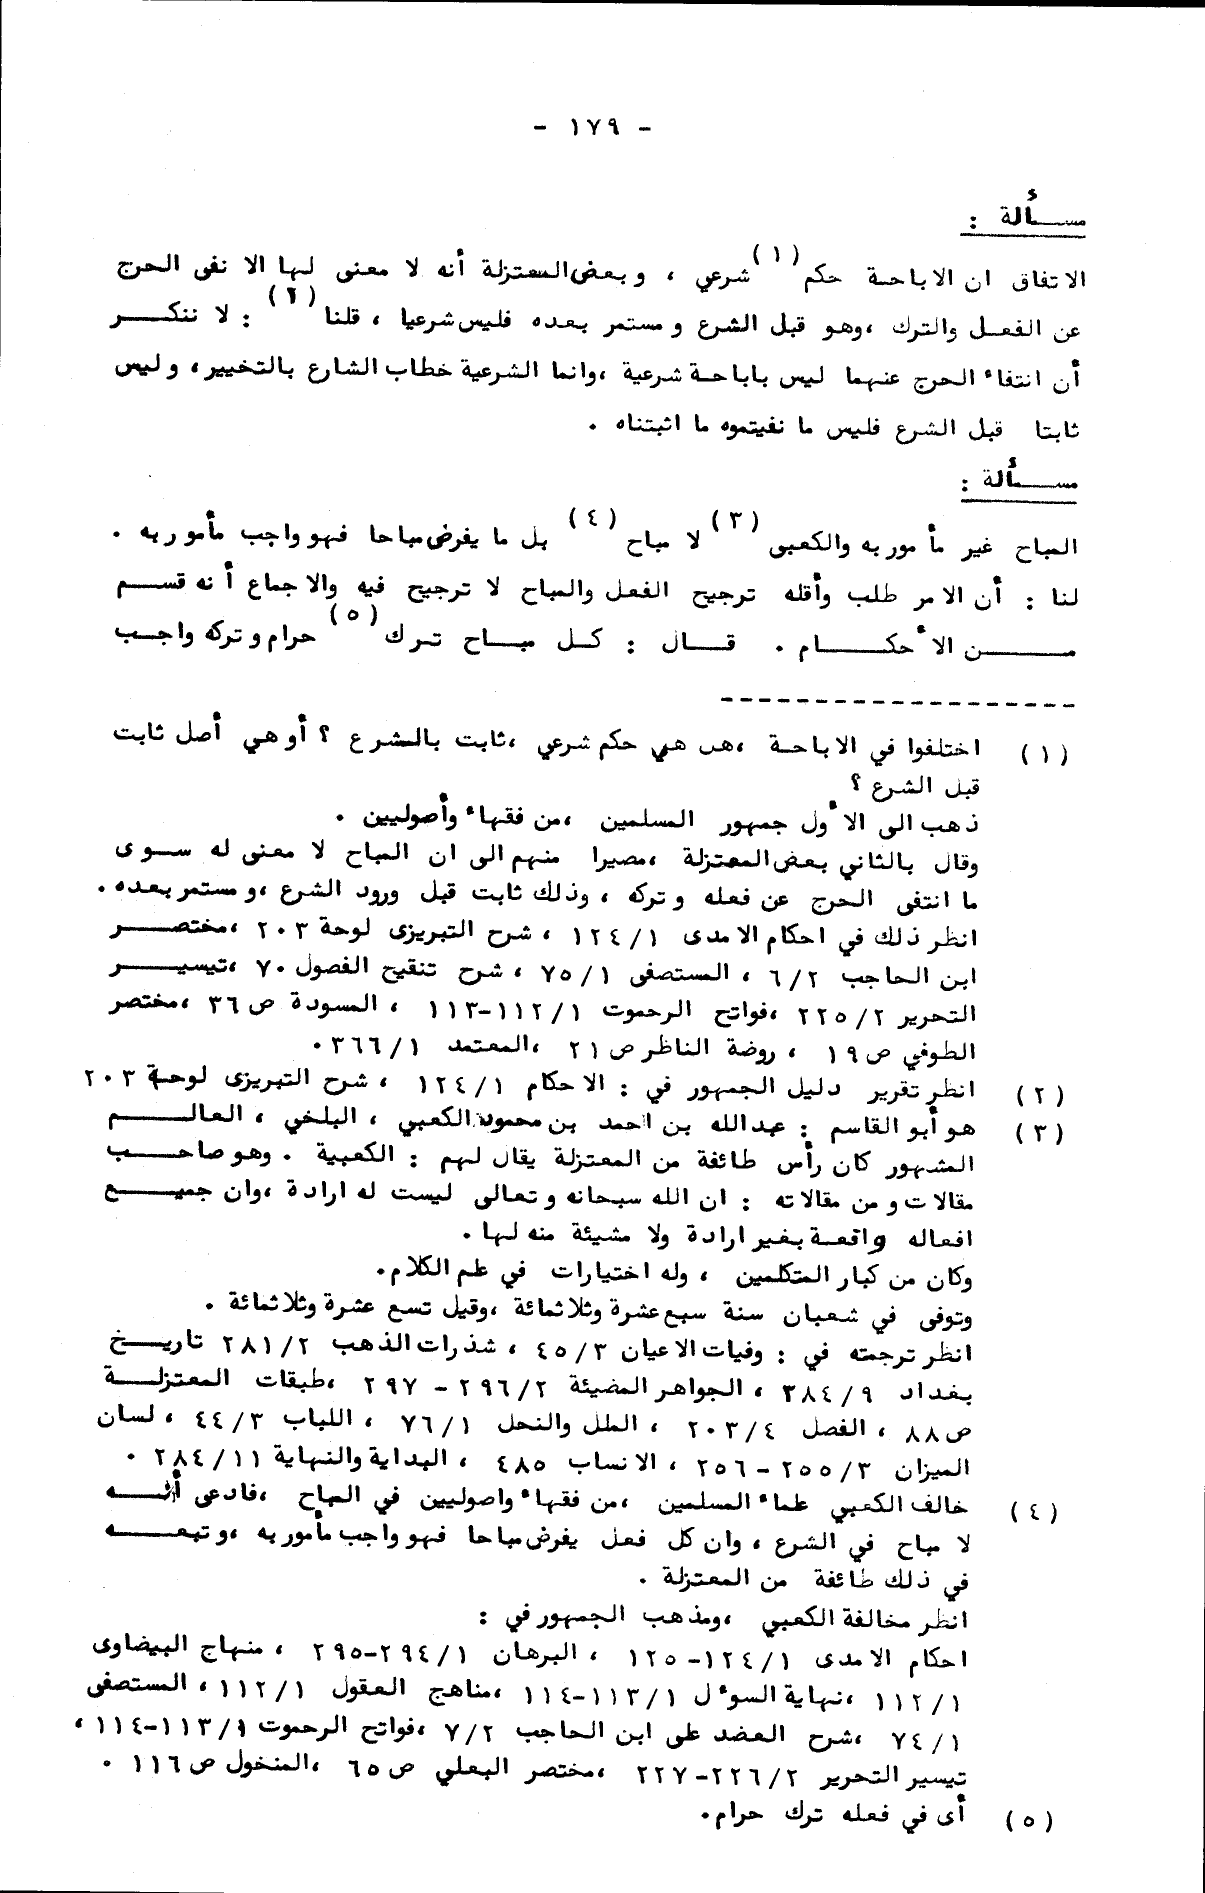 - ١٧٩ -
مسـألة :
الاتفاق ان الاباحة حكم (١) شرعي ، وبعض المعتزلة أنه لا معنى لها الا نفى الحرج
عن الفعل والترك ،وهو قبل الشرع ومستمر بعده فليس شرعيا ، قلنا (٢) : لا ننكـــر
أن انتفاء الحرج عنهما ليس باباحة شرعية ،وانما الشرعية خطاب الشارع بالتخيير، وليس
ثابتا قبل الشرع فليس ما نفيتموه ما اثبتناه .
مسـألة :
المباح غير مأموربه والكعبى (٣) لا مباح (٤) بل ما يفرض مباحا فهو واجب مأموربه .
لنا : أن الامر طلب وأقله ترجيح الفعل والمباح لا ترجيح فيه والاجماع أنه قســم
مــــن الأحكــــام . قــال : كــل مبــاح تـرك (٥) حرام وتركه واجـب
(١) اختلفوا في الاباحة ،هل هي حكم شرعي ،ثابت بالشرع ؟ أو هي أصل ثابت
قبل الشرع ؟
ذهب الى الأول جمهور المسلمين ،من فقهاء وأصوليين .
وقال بالثاني بعض المعتزلة ،مصيرا منهم الى ان المباح لا معنى له ســوى
ما انتفى الحرج عن فعله وتركه ، وذلك ثابت قبل ورود الشرع ،ومستمر بعده .
انظر ذلك في احكام الامدى ١٢٤/١ ، شرح التبريزى لوحة ٢٠٣ ،مختصـــر
ابن الحاجب ٦/٢ ، المستصفى ٧٥/١ ، شرح تنقيح الفصول ٧٠ ،تيسيــــر
التحرير ٢٢٥/٢ ،فواتح الرحموت ١١٢/١-١١٣ ، المسودة ص ٣٦ ،مختصر
الطوفي ص ١٩ ، روضة الناظر ص ٢١ ،المعتمد ٣٦٦/١ .
(٢) انظر تقرير دليل الجمهور في : الاحكام ١٢٤/١ ، شرح التبريزى لوحة ٢٠٣
(٣) هو أبو القاسم : عبدالله بن احمد بن محمود الكعبي ، البلخي ، العالــــم
المشهور كان رأس طائفة من المعتزلة يقال لهم : الكعبية . وهو صاحـــب
مقالات ومن مقالاته : ان الله سبحانه وتعالى ليست له ارادة ،وان جميــــع
افعاله واقعة بغير ارادة ولا مشيئة منه لها .
وكان من كبار المتكلمين ، وله اختيارات في علم الكلام .
وتوفى في شعبان سنة سبع عشرة وثلاثمائة ،وقيل تسع عشرة وثلاثمائة .
انظر ترجمته في : وفيات الاعيان ٤٥/٣ ، شذرات الذهب ٢٨١/٢ تاريـــخ
بغداد ٣٨٤/٩ ، الجواهر المضيئة ٢٩٦/٢ - ٢٩٧ ،طبقات المعتزلــــة
ص ٨٨ ، الفصل ٢٠٣/٤ ، الملل والنحل ٧٦/١ ، اللباب ٤٤/٣ ، لسان
الميزان ٢٥٥/٣ - ٢٥٦ ، الانساب ٤٨٥ ، البداية والنهاية ٢٨٤/١١ .
(٤) خالف الكعبي علماء المسلمين ،من فقهاء واصوليين في المباح ،فادعى أنـــه
لا مباح في الشرع ، وان كل فعل يفرض مباحا فهو واجب مأموربه ،وتبعـــه
في ذلك طائفة من المعتزلة .
انظر مخالفة الكعبي ،ومذهب الجمهور في :
احكام الامدى ١٢٤/١-١٢٥ ، البرهان ٢٩٤/١-٢٩٥ ، منهاج البيضاوى
١١٢/١ ،نهاية السوٴل ١١٣/١-١١٤ ،مناهج العقول ١١٢/١ ، المستصفى
٧٤/١ ،شرح العضد على ابن الحاجب ٧/٢ ،فواتح الرحموت ١١٣/١-١١٤ ،
تيسير التحرير ٢٢٦/٢-٢٢٧ ،مختصر البعلي ص ٦٥ ،المنخول ص ١١٦ .
(٥) أى في فعله ترك حرام .